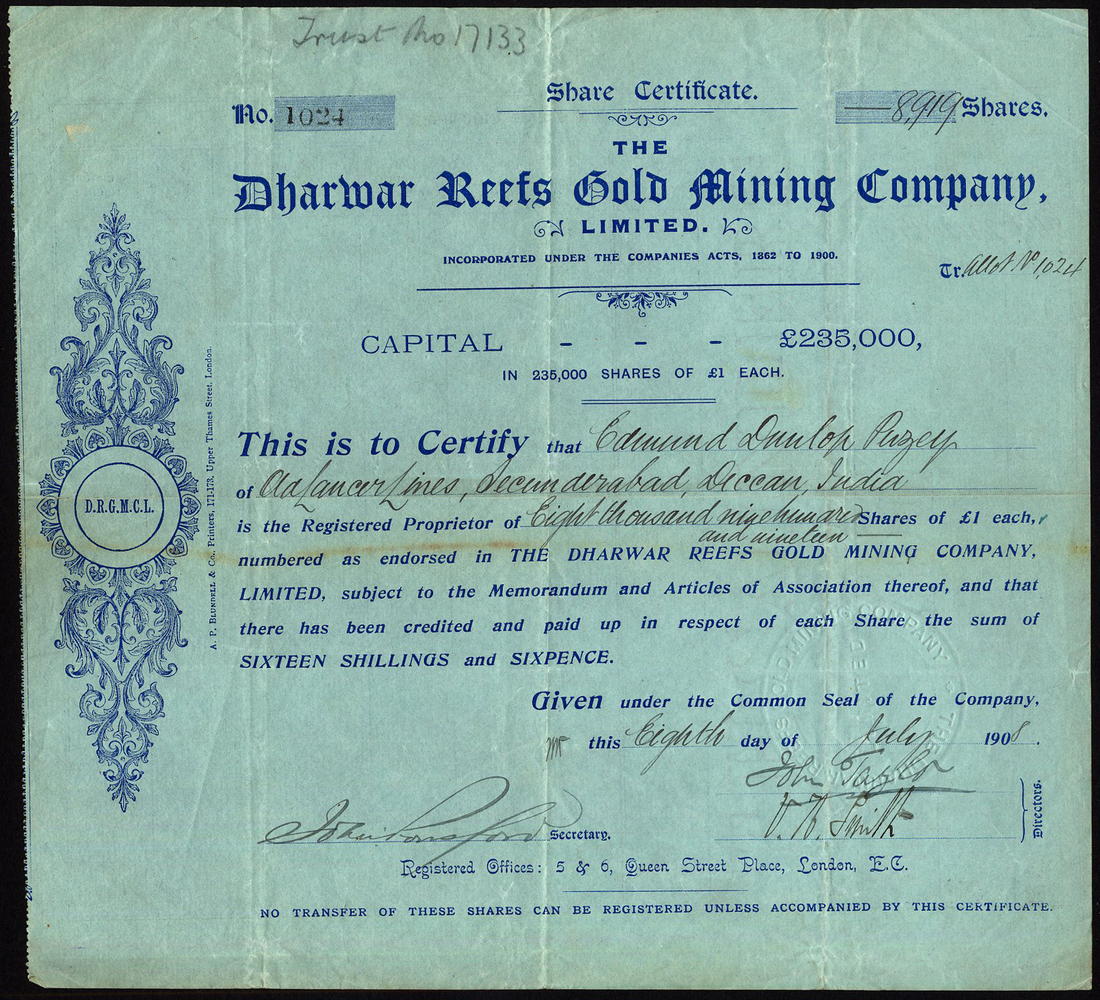 Trust No 17133
Share Certificate.
No. 1024
8,919 Shares.
THE
Dharwar Reefs Gold Mining Company,
LIMITED.
INCORPORATED UNDER THE COMPANIES ACTS, 1862 TO 1900.
Tr. Allot. No 1024
CAPITAL - - - £235,000,
IN 235,000 SHARES OF £1 EACH.
This is to Certify that Edmund Dunlop Puzey
of Lancer Lines, Secunderabad, Deccan, India
is the Registered Proprietor of Eight thousand nine hundred Shares of £1 each,
and nineteen
numbered as endorsed in THE DHARWAR REEFS GOLD MINING COMPANY,
LIMITED, subject to the Memorandum and Articles of Association thereof, and that
there has been credited and paid up in respect of each Share the sum of
SIXTEEN SHILLINGS and SIXPENCE.
Given under the Common Seal of the Company,
this Eighth day of July 1908.
John Taylor
Smith
Directors.
Secretary.
Registered Offices: 5 & 6, Queen Street Place, London, E.C.
NO TRANSFER OF THESE SHARES CAN BE REGISTERED UNLESS ACCOMPANIED BY THIS CERTIFICATE.
D.R.G.M.C.L.
A. P. BLUNDELL & Co., Printers, 171-173, Upper Thames Street, London.